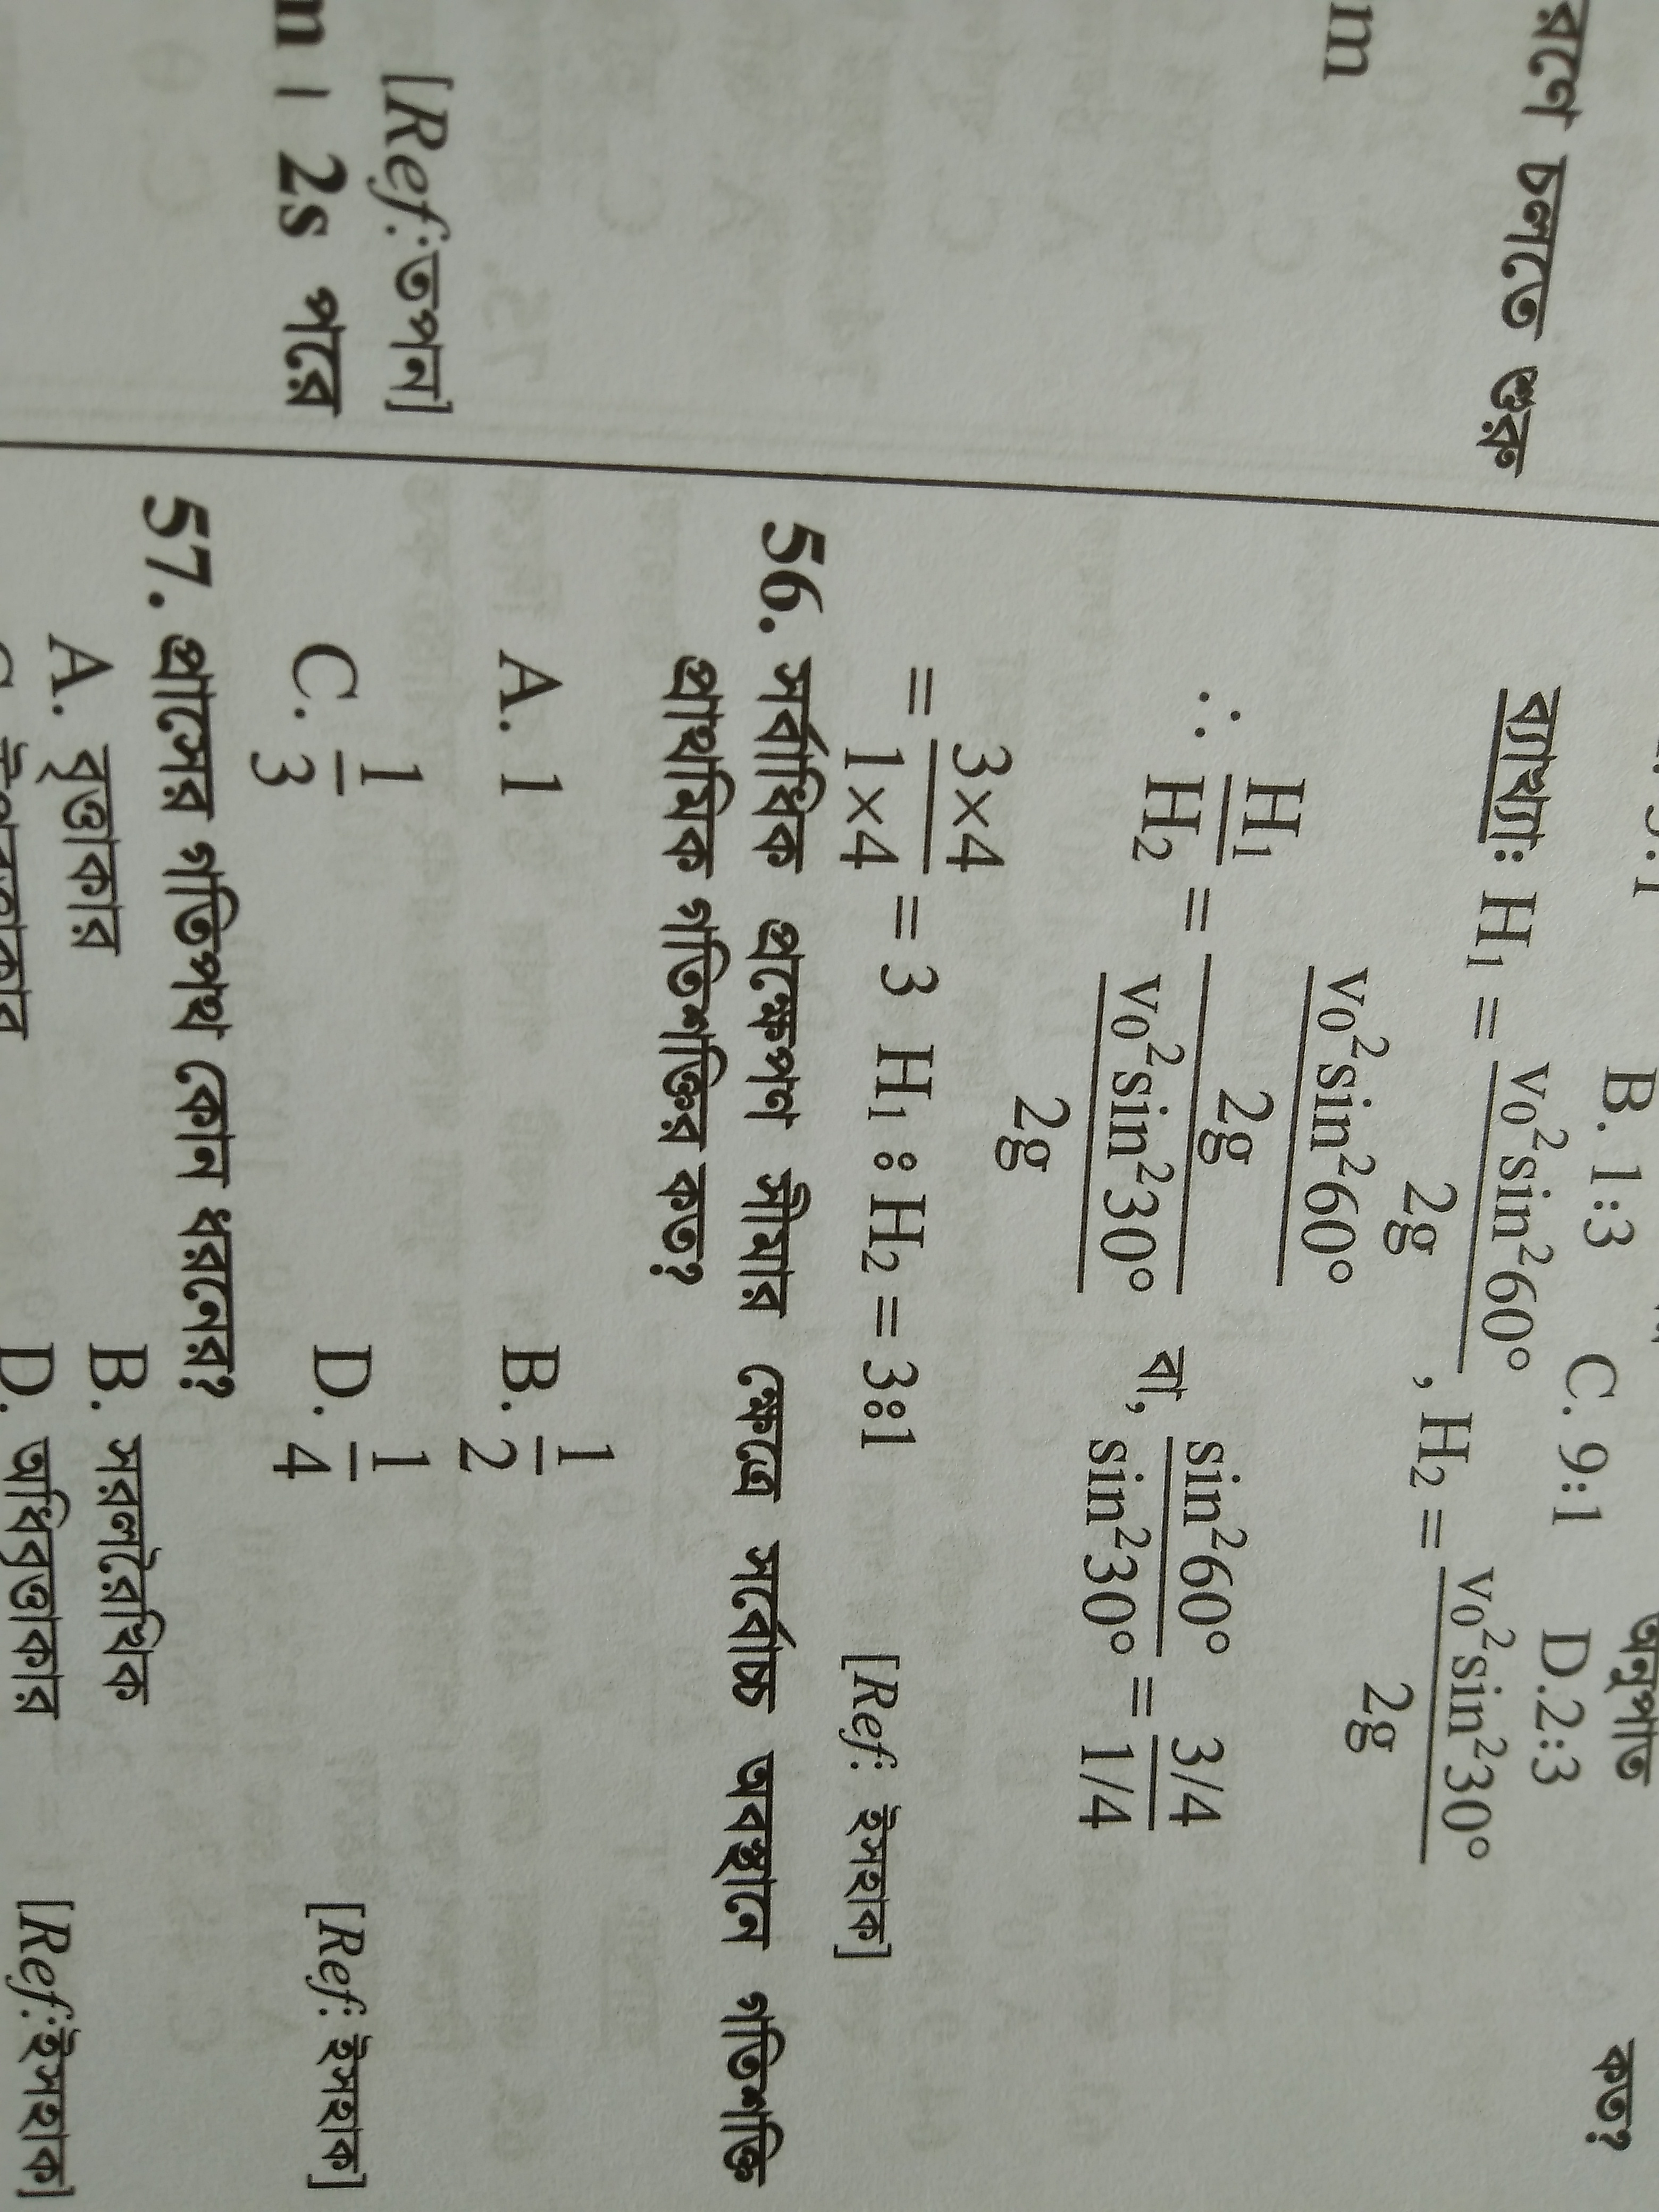 রণে চলতে শুরু
m
[Ref:তপন]
m । 2s পরে
অনুপাত কত?
B. 1:3 C. 9:1 D.2:3
ব্যাখ্যা: H₁ = v₀²sin²60° / 2g , H₂ = v₀²sin²30° / 2g
∴ H₁/H₂ = (v₀²sin²60° / 2g) / (v₀²sin²30° / 2g) বা, sin²60° / sin²30° = 3/4 / 1/4
= 3×4 / 1×4 = 3 H₁ : H₂ = 3:1 [Ref: ইসহাক]
56. সর্বাধিক প্রক্ষেপণ সীমার ক্ষেত্রে সর্বোচ্চ অবস্থানে গতিশক্তি
প্রাথমিক গতিশক্তির কত?
A. 1 B. 1/2
C. 1/3 D. 1/4 [Ref: ইসহাক]
57. প্রাসের গতিপথ কোন ধরনের?
A. বৃত্তাকার B. সরলরৈখিক
D. অধিবৃত্তাকার [Ref:ইসহাক]